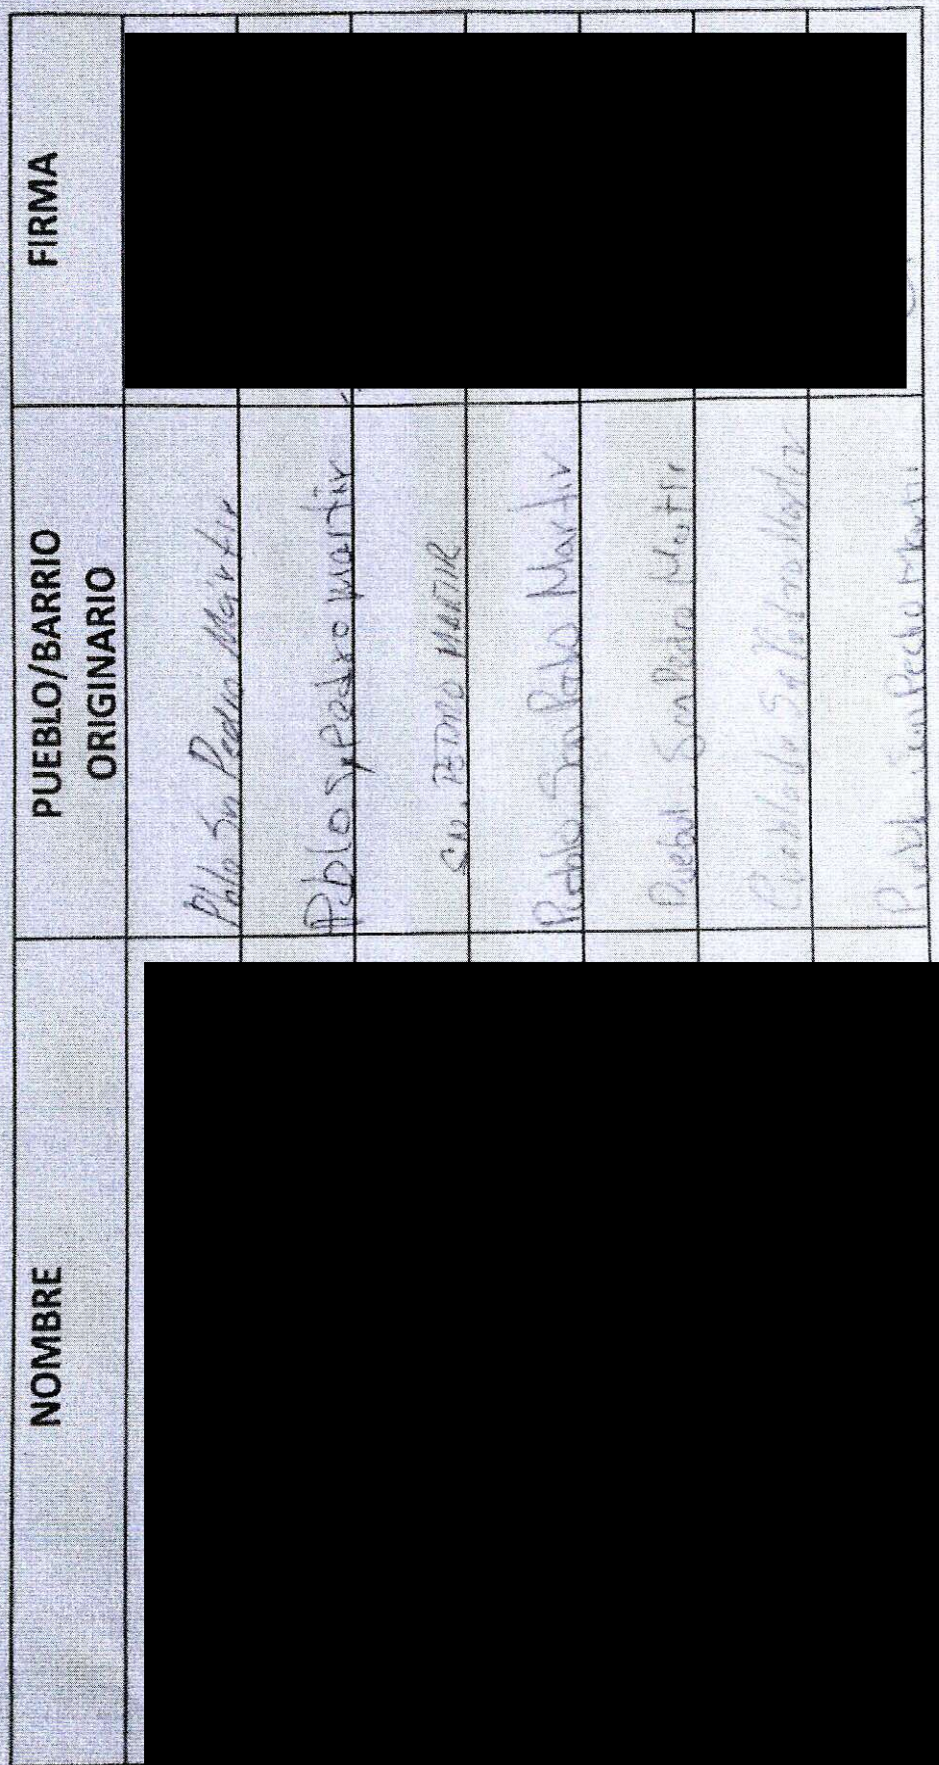 NOMBRE
PUEBLO/BARRIO
ORIGINARIO
FIRMA
Pblo Sn Pedro Mártir
Pblo Sn Pedro Martir
SN. PEDRO MARTIR
Pueblo San Pedro Martir
Puebol San Pedro Martir
San Pedro Martir
San Pedro Martir